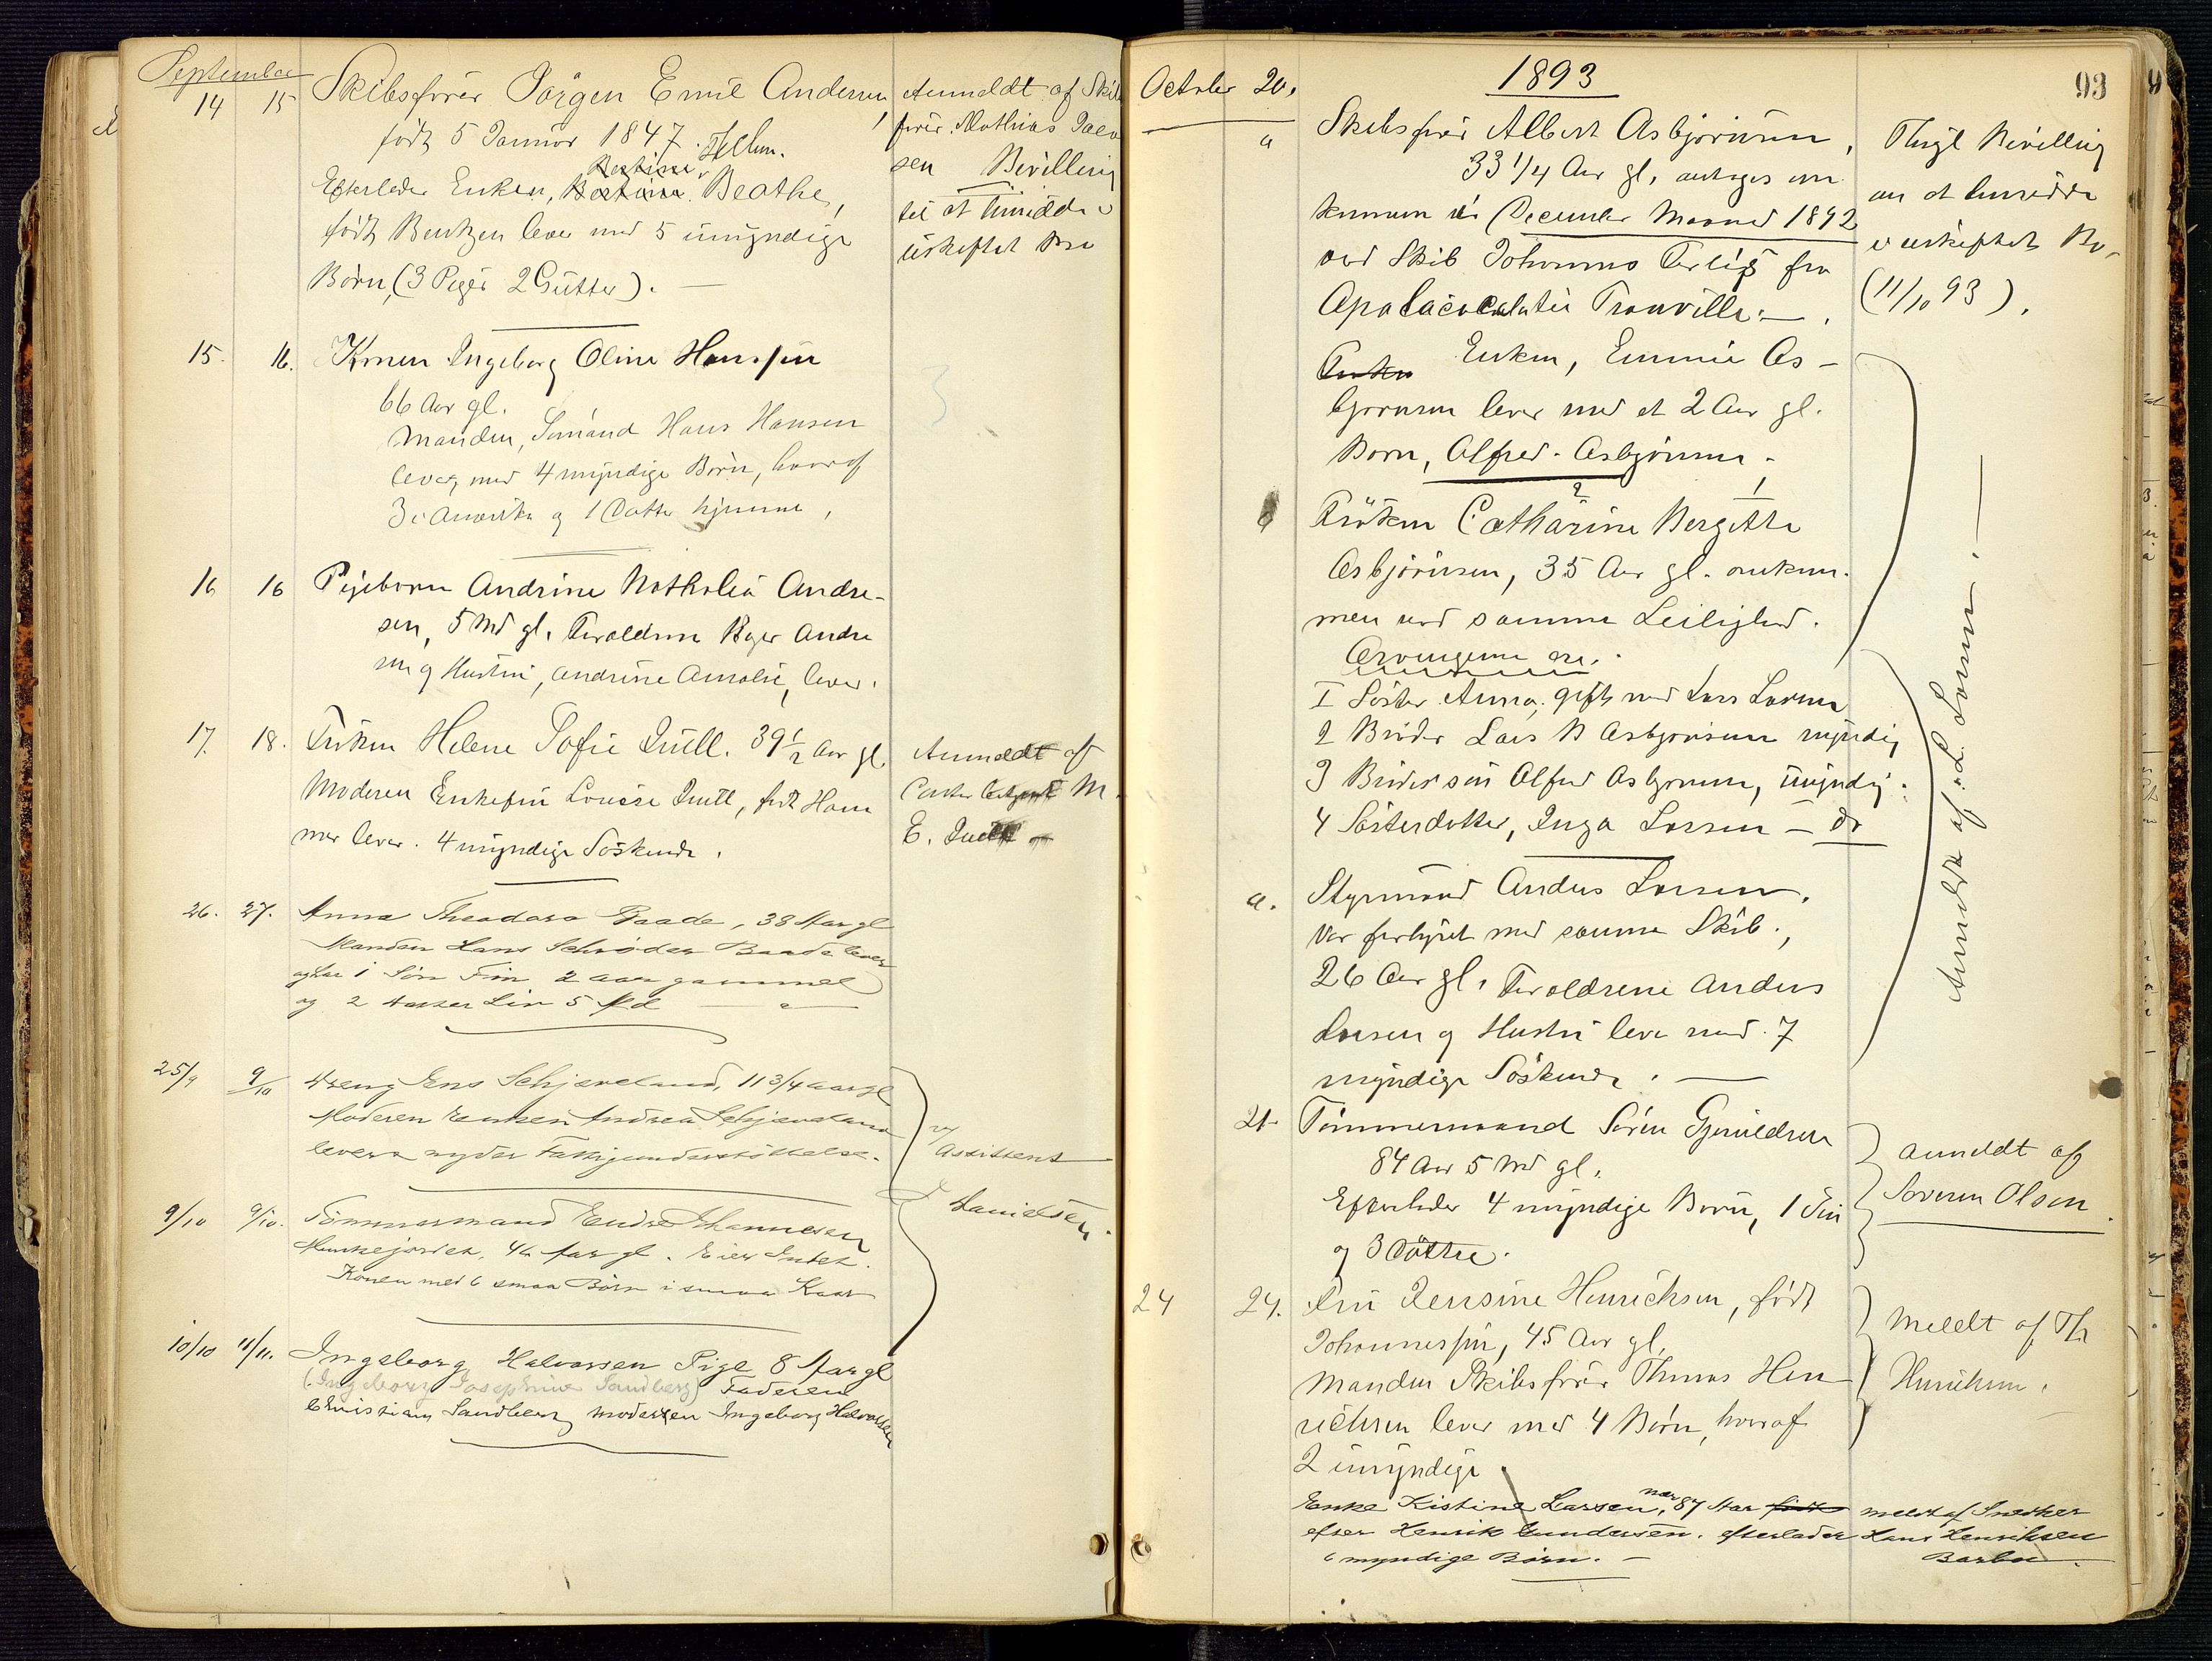 September
14 15 Skibsfører Jørgen Emil Andersen,
født 5 Januar 1847.
Bertine
Efterlader Enken, Beathe,
født Bentzen lever med 5 umyndige
Børn, (3 Piger 2 Gutter). —
Anmeldt af Skibs
fører Mathias
sen Bevilling
til at hensidde i
uskiftet Bo
15. 16. Konen Ingeborg Oline Hanssen
66 Aar gl.
Manden, Sømand Hans Hansen
lever, med 4 myndige Børn, hvoraf
3 i Amerika og 1 Datter hjemme,
16 16 Pigebarn Andrine Nathalia Andre-
sen, 5 Md gl. Forældrene Andre
sen og Hustru, Andrine Amalie, lever.
17. 18. Frøken Helene Sofie Juell. 39 1/2 Aar gl
Moderen Enkefru Lovise Juell, født Ham
mer lever. 4 myndige Søskende.
Anmeldt af
M.
E. Juell
26. 27. Anna Theodora Baade, 33 Aar gl
Manden Hans Schrøder Baade lever
og har 1 Søn Finn 2 aar gammel
og 2 Datter Liv 5 Md
25/9 9/10 Dreng Jens Schjæveland, 11 3/4 aar gl
Moderen Enken Andrea Schjæveland
lever nyder Fattigunderstøttelse.
v/
Assistent
Danielsen.
9/10 9/10. Tømmermand Endre Johannesen
Munkejordet, 46 Aar gl. Eier Intet.
Konen med 6 smaa Børn i smaa Kaar
10/10 11/11. Ingeborg Halvorsen Pige 8 Aar gl
(Ingeborg Josephine Sandberg) Faderen
Christian Sandberg Moderen Ingeborg Halvorsen
October 20. 1893 93
a Skibsfører Albert Asbjørnsen,
33 1/4 Aar gl. antages om
kommen i December Maaned 1892
ved Skib Johannes fra
til Trouville. —
Enken, Emmie As-
bjørnsen lever med et 2 Aar gl.
Barn, Alfred Asbjørnsen.
Tillige Bevilling
om at hensidde
i uskiftet Bo,
(11/10 93).
Frøken Catharine Bergitte
Asbjørnsen, 35 Aar gl. omkom-
men ved samme Leilighed.
Arvingerne ere.
I Søster Anna, gift med Lars Larsen
2 Broder Lars B Asbjørnsen myndig
3 Brodersøn Alfred Asbjørnsen, umyndig.
4 Søsterdatter, Inga Larsen — do
a. Styrmand Anders Larsen,
var forhyret med samme Skib.,
26 Aar gl. Forældrene Anders
Larsen og Hustru leve med 7
myndige Søskende. —
Anmeldt af: L. Larsen. —
21. Tømmermand Søren Gjeruldsen
84 Aar 5 Md gl.
Efterlader 4 myndige Børn, 1 Søn
og 3 Døttre.
Anmeldt af
Soren Olsen.
24 24. Fru Jensine Henrichsen, født
Johannessen, 45 Aar gl.
Manden Skibsfører Thomas Hen
richsen lever med 4 Børn, hvoraf
2 umyndige.
Meldt af Th
Henrichsen.
Enke Kistine Larsen, nær 87 Aar født
efter Henrik Gundersen. efterlader
6 myndige Børn. —
meldt af Snedker
Hans Henriksen
Barbu.